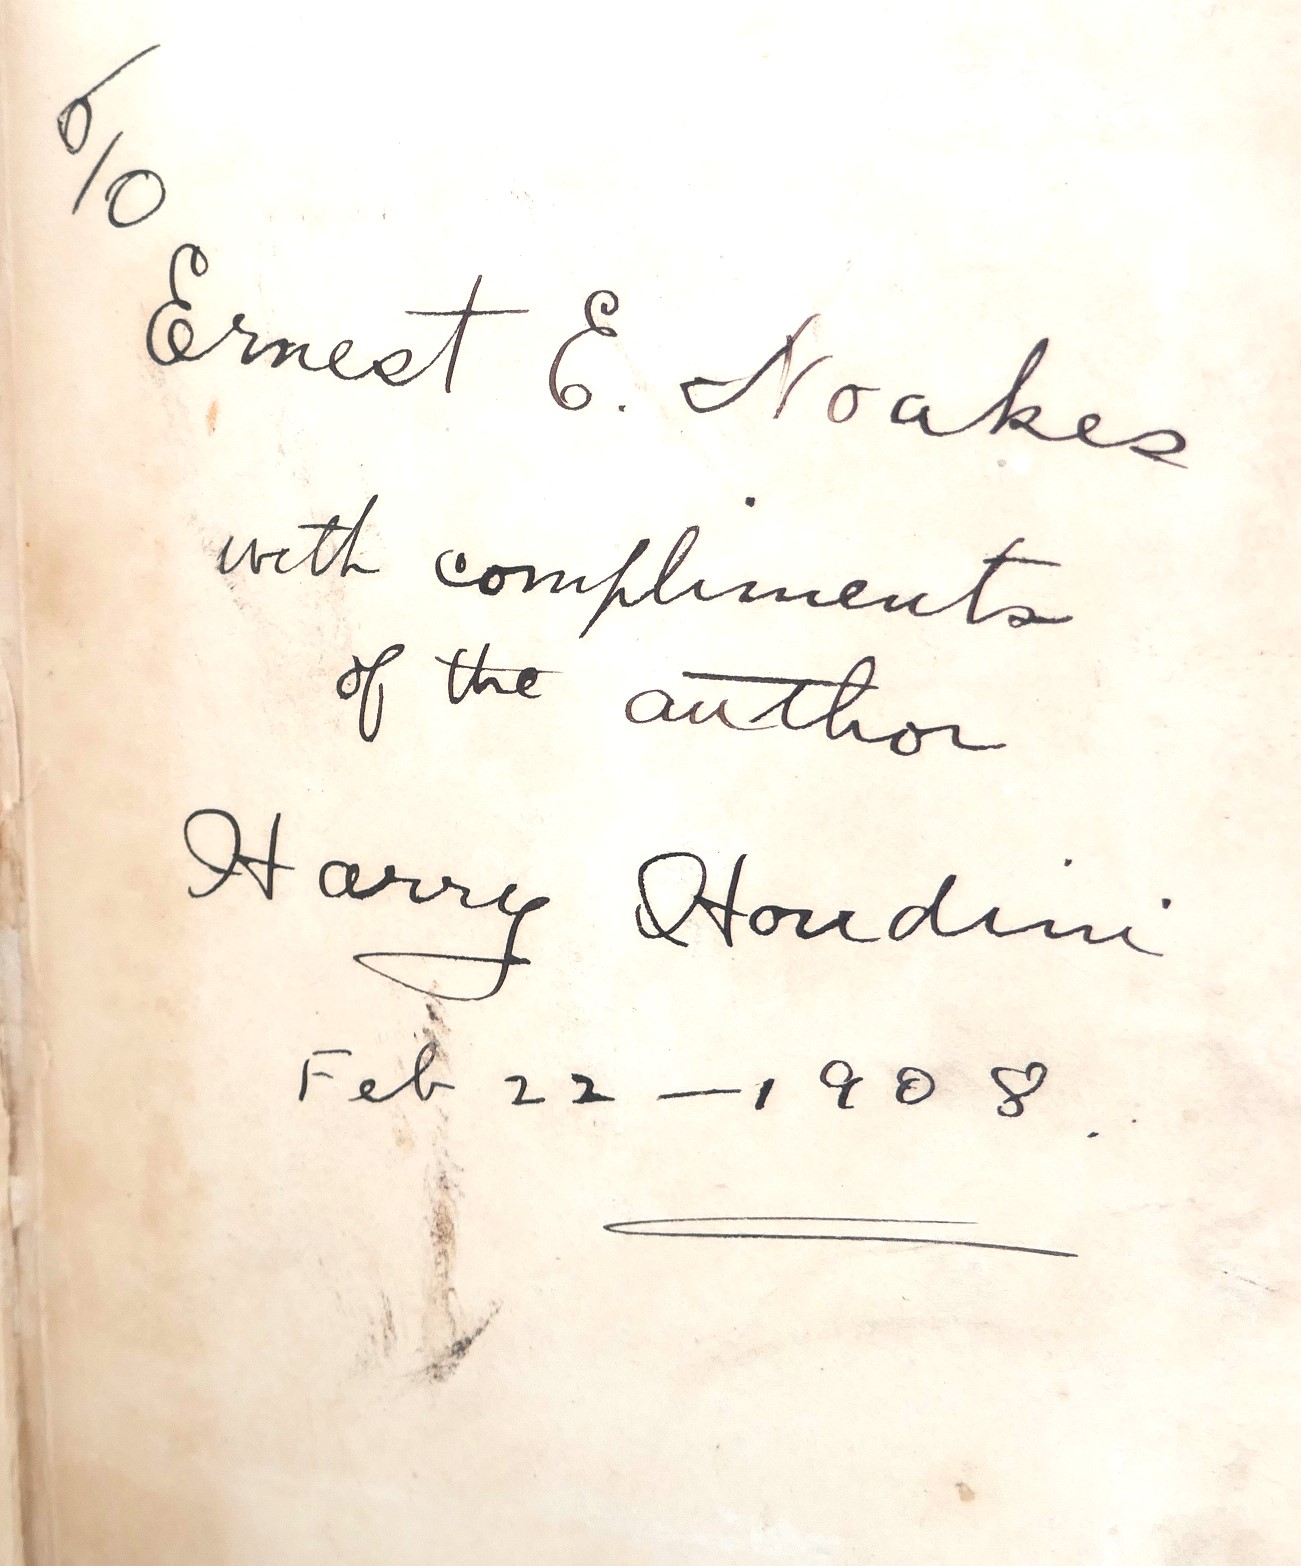 Ernest E. Noakes
with compliments
of the author
Harry Houdini
Feb 22 — 1908.